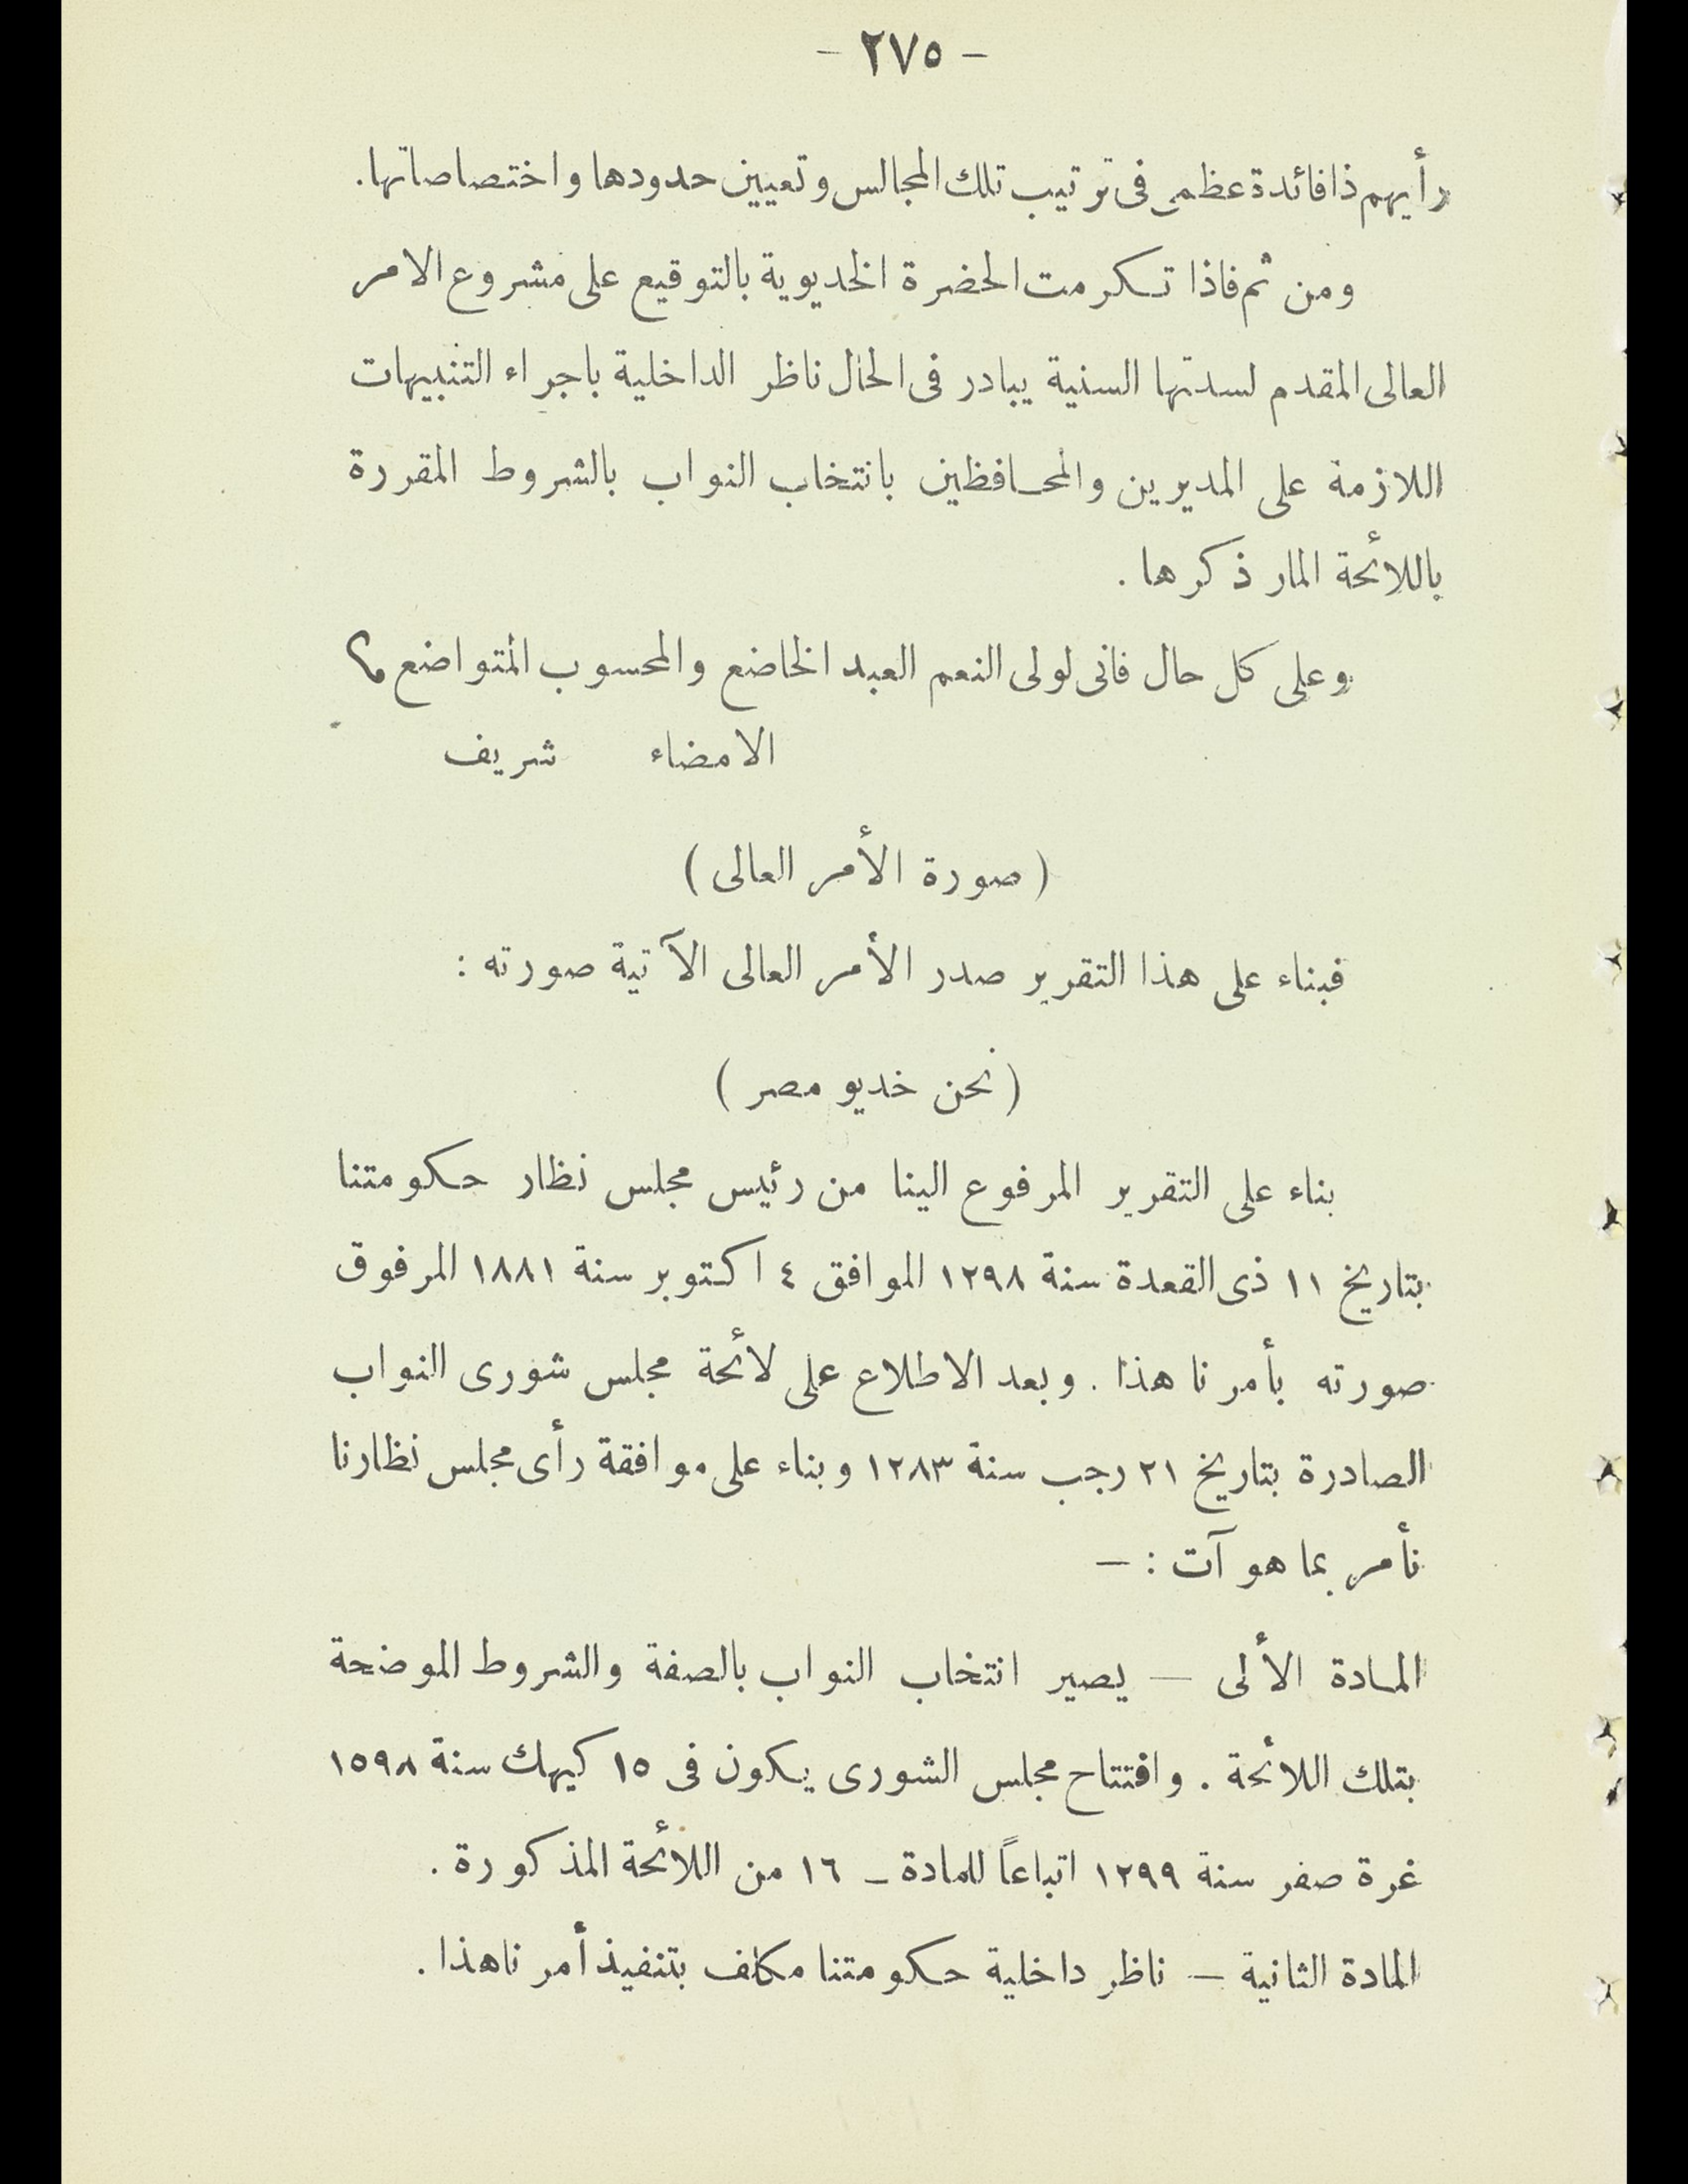 - ٢٧٥ -
رأيهم ذا فائدة عظمى فى ترتيب تلك المجالس وتعيين حدودها واختصاصاتها.
ومن ثم فاذا تكرمت الحضرة الخديوية بالتوقيع على مشروع الامر
العالى المقدم لسدتها السنية يبادر فى الحال ناظر الداخلية باجراء التنبيهات
اللازمة على المديرين والمحافظين بانتخاب النواب بالشروط المقررة
باللائحة المار ذكرها .
وعلى كل حال فانى لولى النعم العبد الخاضع والمحسوب المتواضع
الامضاء شريف
( صورة الأمر العالى )
فبناء على هذا التقرير صدر الأمر العالى الآتية صورته :
( نحن خديو مصر )
بناء على التقرير المرفوع الينا من رئيس مجلس نظار حكومتنا
بتاريخ ١١ ذى القعدة سنة ١٢٩٨ الموافق ٤ اكتوبر سنة ١٨٨١ المرفوق
صورته بأمرنا هذا . وبعد الاطلاع على لائحة مجلس شورى النواب
الصادرة بتاريخ ٢١ رجب سنة ١٢٨٣ وبناء على موافقة رأى مجلس نظارنا
نأمر بما هو آت : –
المادة الألى – يصير انتخاب النواب بالصفة والشروط الموضحة
بتلك اللائحة . وافتتاح مجلس الشورى يكون فى ١٥ كيهك سنة ١٥٩٨
غرة صفر سنة ١٢٩٩ اتباعاً للمادة – ١٦ من اللائحة المذكورة .
المادة الثانية – ناظر داخلية حكومتنا مكلف بتنفيذ أمرنا هذا .